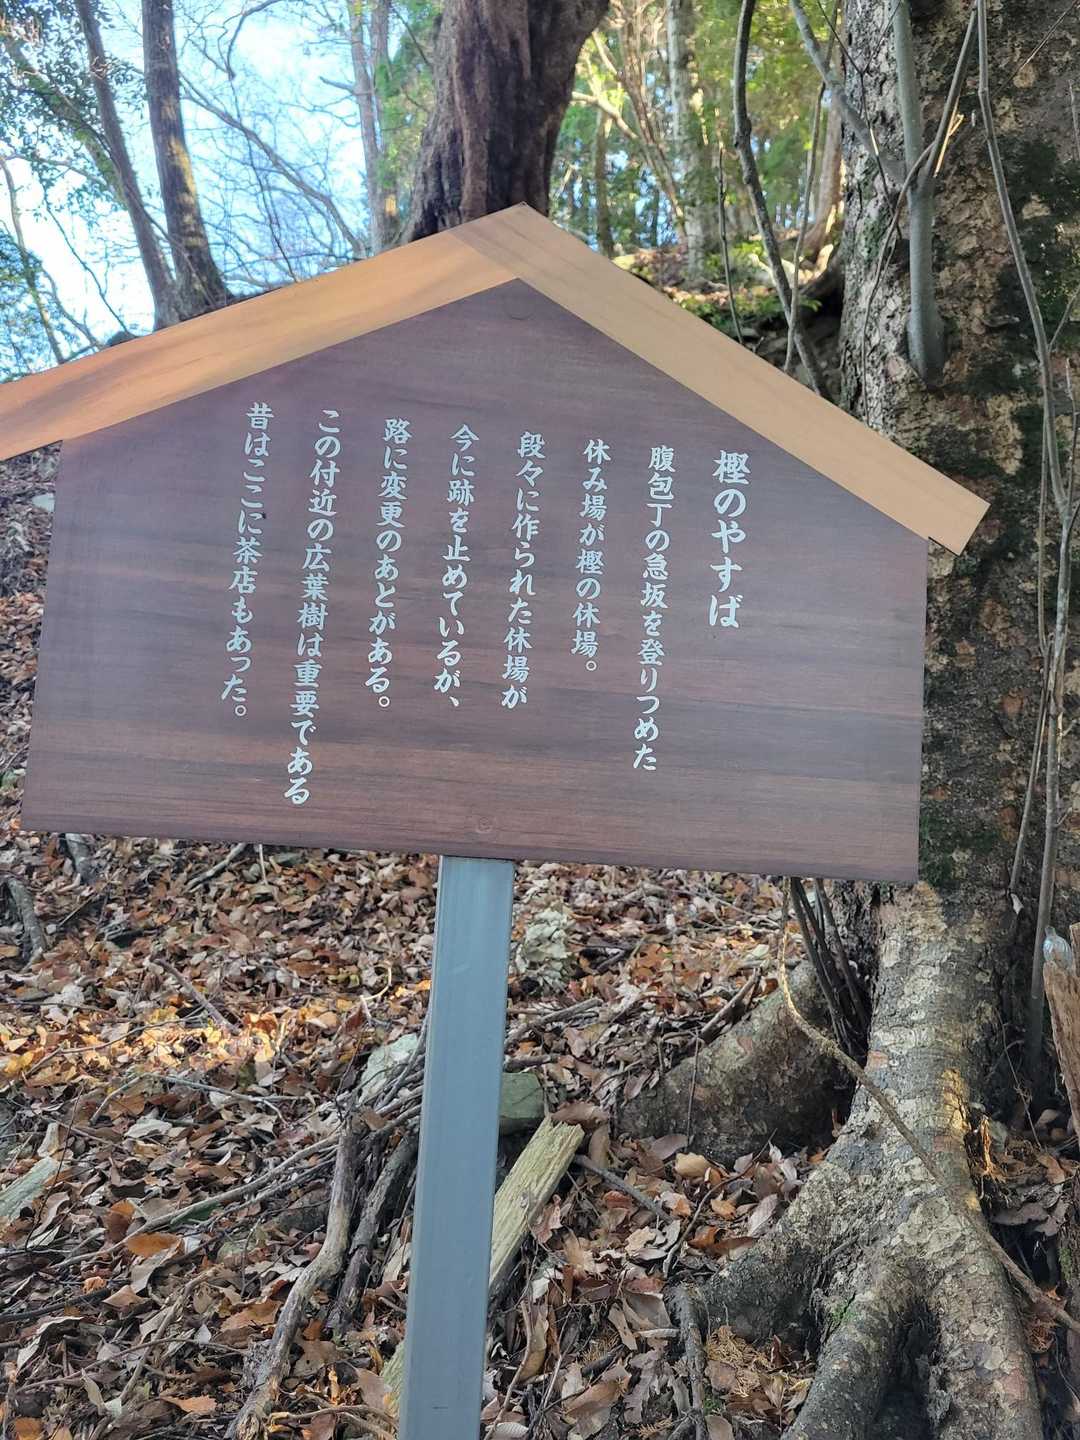 樫のやすば
腹包丁の急坂を登りつめた
休み場が樫の休場。
段々に作られた休場が
今に跡を止めているが、
路に変更のあとがある。
この付近の広葉樹は重要である
昔はここに茶店もあった。